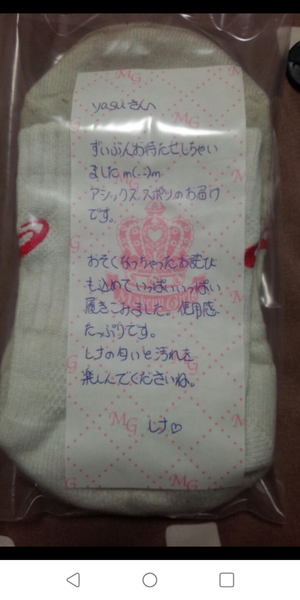 yasuさんへ
ずいぶんお待たせしちゃい
ましたm(..)m
アシックススポソのお届け
です。
おそくなっちゃったお詫び
も込めていっぱいいっぱい
履きこみました。使用感
たっぷりです。
レナの匂いと汚れを
楽しんでくださいね。
レナ♡
MG
MG
MG
MG
MG